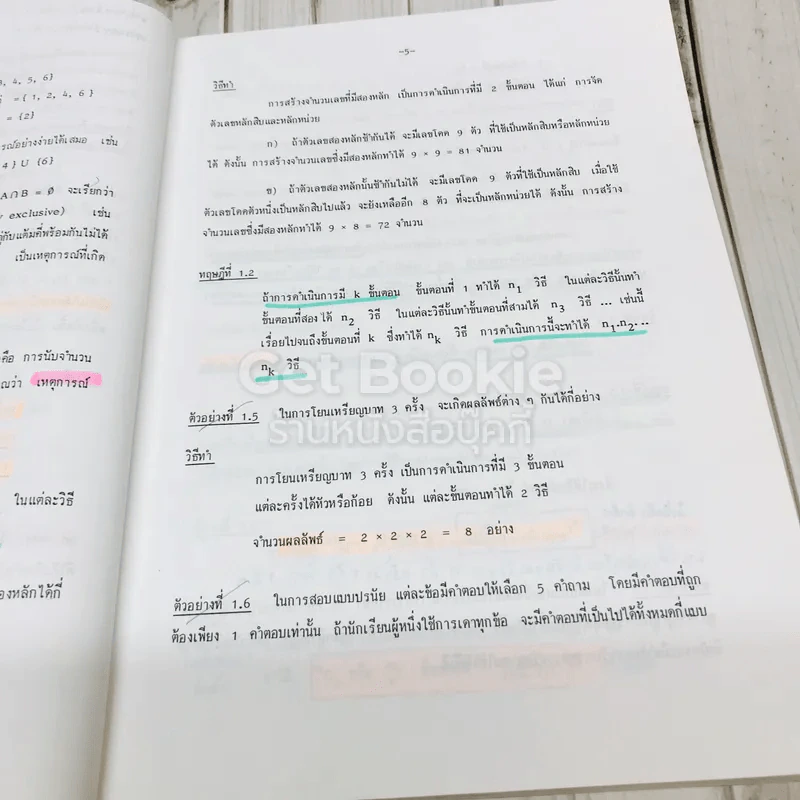 3, 4, 5, 6}
= { 1, 2, 4, 6 }
= {2}
รณ์อย่างง่ายได้เสมอ เช่น
4 } U {6}
A∩B = Ø จะเรียกว่า
exclusive) เช่น
กับแต้มคี่พร้อมกันไม่ได้
เป็นเหตุการณ์ที่เกิด
คือ การนับจำนวน
ณว่า เหตุการณ์
ในแต่ละวิธี
องหลักได้กี่
-5-
วิธีทำ
การสร้างจำนวนเลขที่มีสองหลัก เป็นการดำเนินการที่มี 2 ขั้นตอน ได้แก่ การจัด
ตัวเลขหลักสิบและหลักหน่วย
ก) ถ้าตัวเลขสองหลักซ้ำกันได้ จะมีเลขโดด 9 ตัว ที่ใช้เป็นหลักสิบหรือหลักหน่วย
ได้ ดังนั้น การสร้างจำนวนเลขซึ่งมีสองหลักทำได้ 9 × 9 = 81 จำนวน
ข) ถ้าตัวเลขสองหลักนั้นซ้ำกันไม่ได้ จะมีเลขโดด 9 ตัวที่ใช้เป็นหลักสิบ เมื่อใช้
ตัวเลขโดดตัวหนึ่งเป็นหลักสิบไปแล้ว จะยังเหลืออีก 8 ตัว ที่จะเป็นหลักหน่วยได้ ดังนั้น การสร้าง
จำนวนเลขซึ่งมีสองหลักทำได้ 9 × 8 = 72 จำนวน
ทฤษฎีที่ 1.2
ถ้าการดำเนินการมี k ขั้นตอน ขั้นตอนที่ 1 ทำได้ n₁ วิธี ในแต่ละวิธีนั้นทำ
ขั้นตอนที่สองได้ n₂ วิธี ในแต่ละวิธีนั้นทำขั้นตอนที่สามได้ n₃ วิธี ... เช่นนี้
เรื่อยไปจนถึงขั้นตอนที่ k ซึ่งทำได้ nₖ วิธี การดำเนินการนี้จะทำได้ n₁.n₂...
nₖ วิธี
Get Bookie
ร้านหนังสือบุคกี้
ตัวอย่างที่ 1.5 ในการโยนเหรียญบาท 3 ครั้ง จะเกิดผลลัพธ์ต่าง ๆ กันได้กี่อย่าง
วิธีทำ
การโยนเหรียญบาท 3 ครั้ง เป็นการดำเนินการที่มี 3 ขั้นตอน
แต่ละครั้งได้หัวหรือก้อย ดังนั้น แต่ละขั้นตอนทำได้ 2 วิธี
จำนวนผลลัพธ์ = 2 × 2 × 2 = 8 อย่าง
ตัวอย่างที่ 1.6 ในการสอบแบบปรนัย แต่ละข้อมีคำตอบให้เลือก 5 คำถาม โดยมีคำตอบที่ถูก
ต้องเพียง 1 คำตอบเท่านั้น ถ้านักเรียนผู้หนึ่งใช้การเดาทุกข้อ จะมีคำตอบที่เป็นไปได้ทั้งหมดกี่แบบ